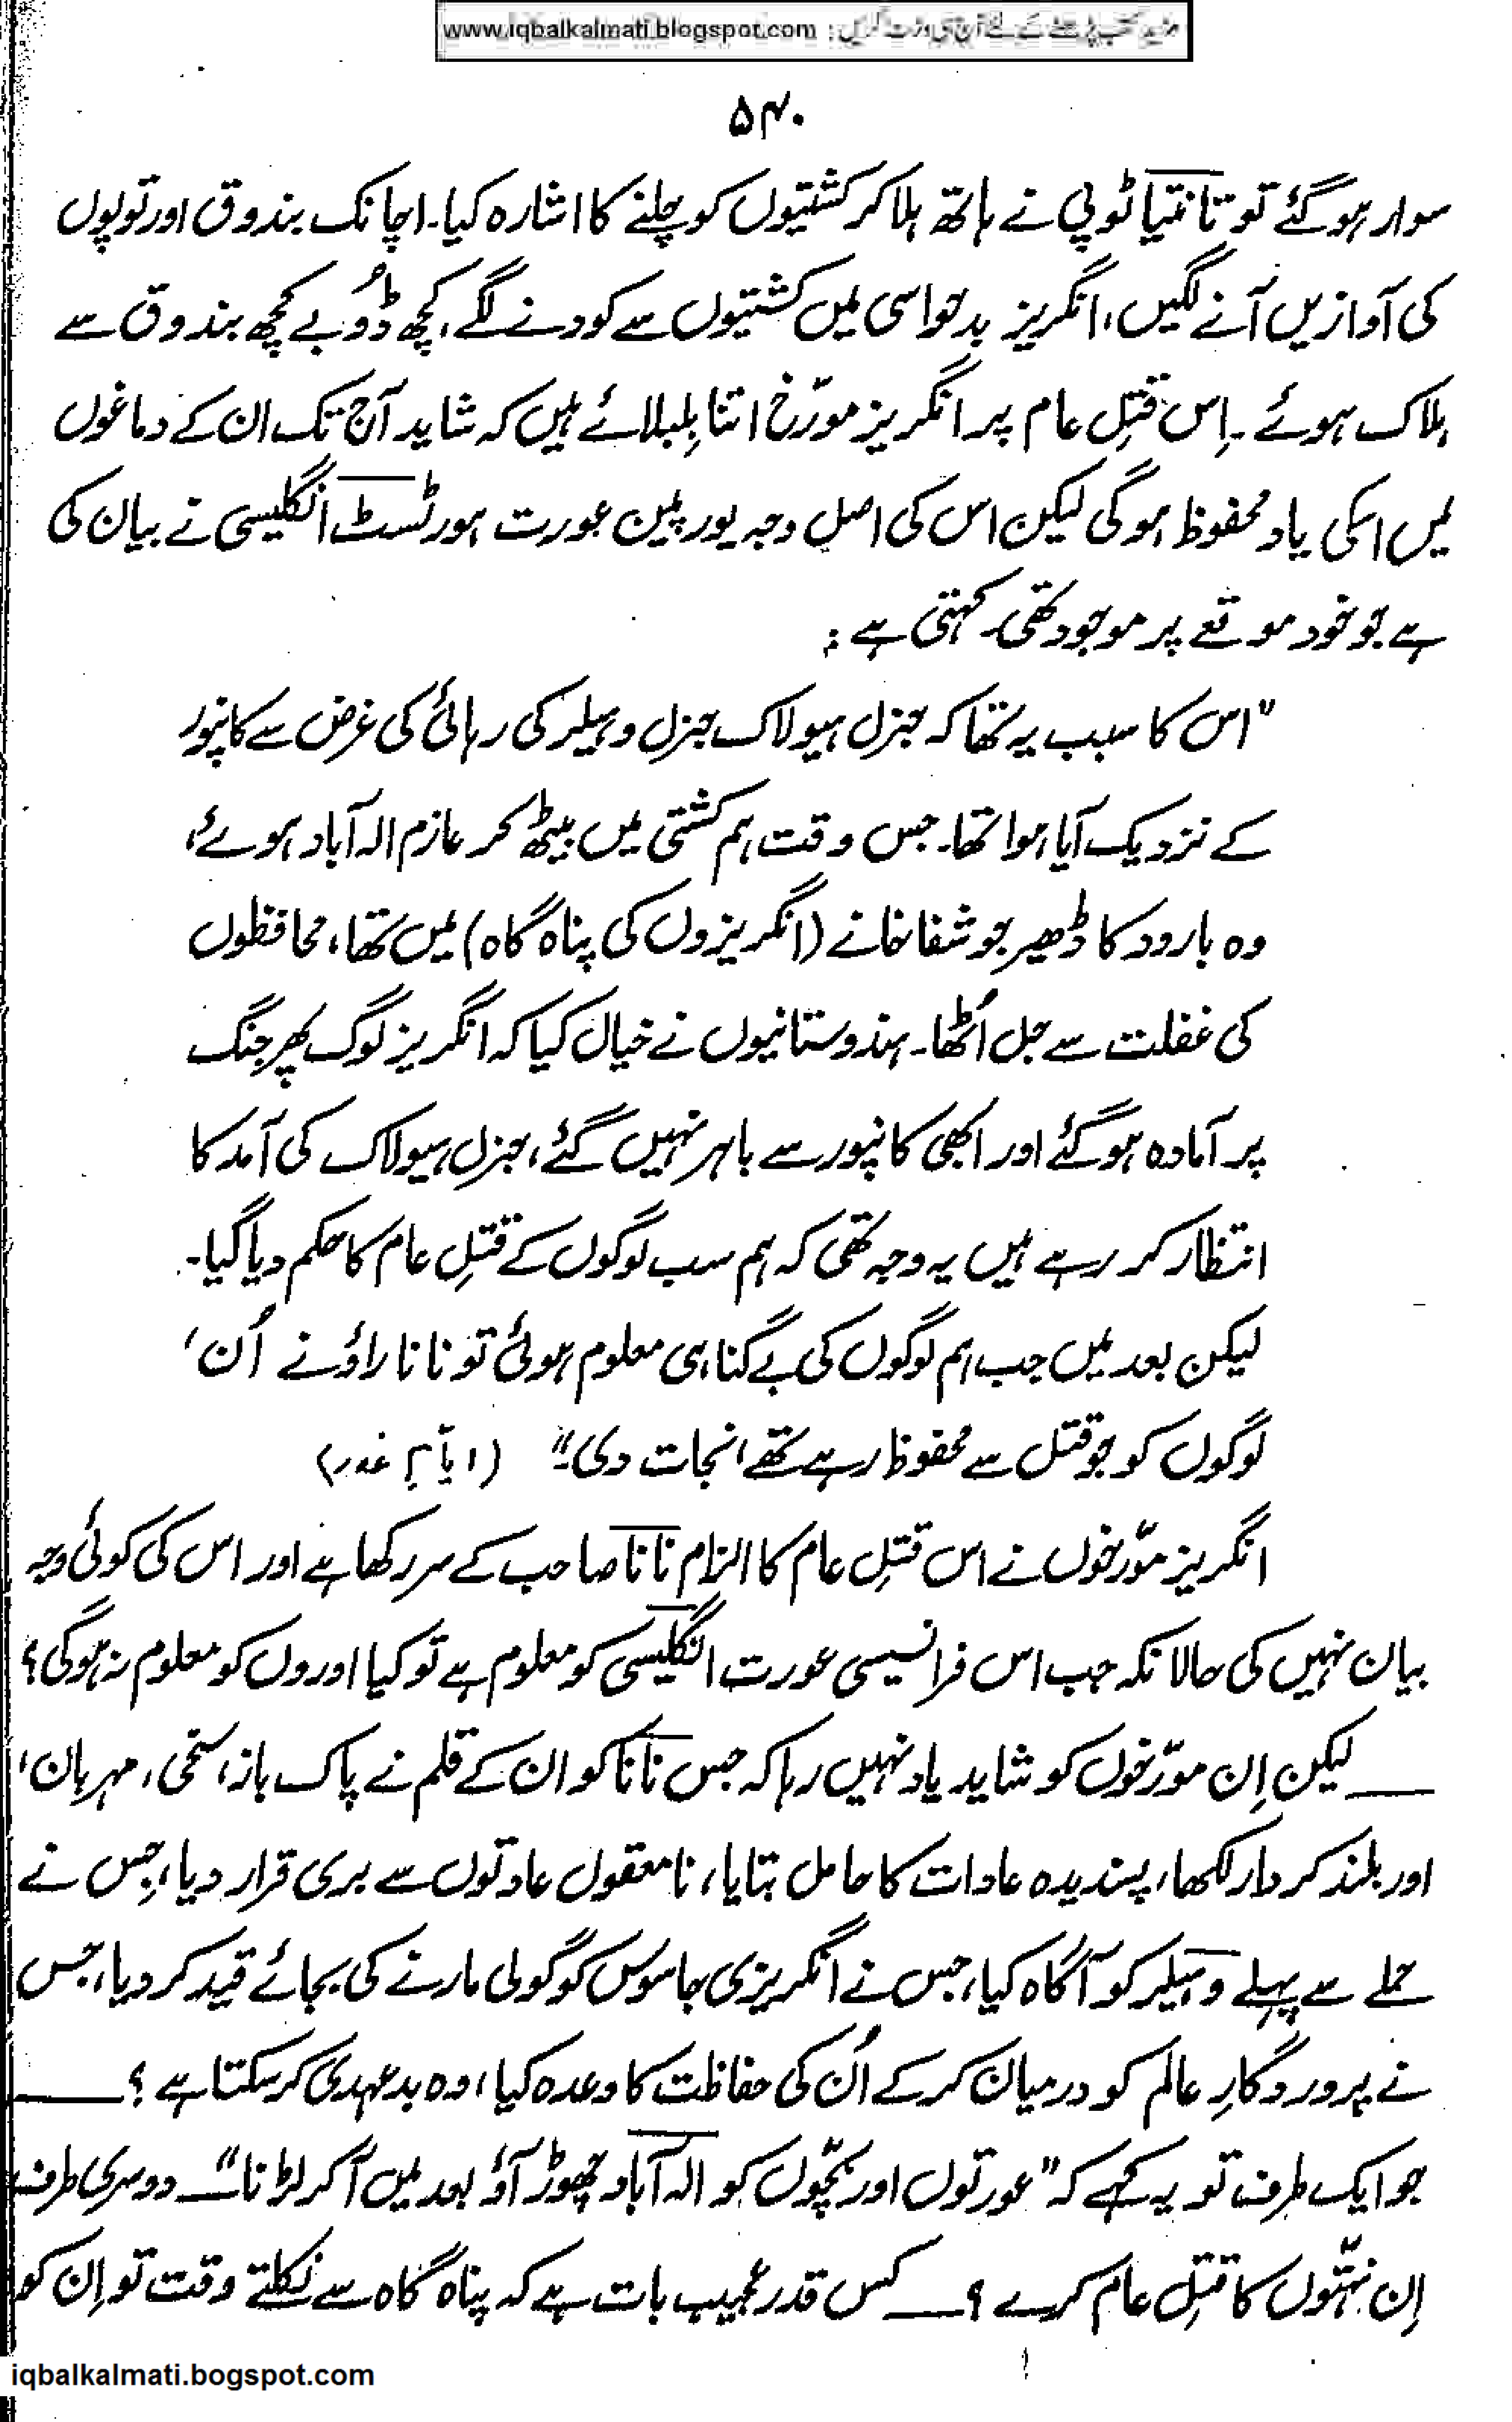 مزید کتب پڑھنے کے لئے آج ہی وزٹ کریں : www.iqbalkalmati.blogspot.com
۵۴۰
سوار ہو گئے تو تانتیا ٹوپی نے ہاتھ ہلا کر کشتیوں کو چلنے کا اشارہ کیا۔ اچانک بندوق اور توپوں
کی آوازیں آنے لگیں، انگریز بدحواسی میں کشتیوں سے کودنے لگے، کچھ ڈوُبے کچھ بندوق سے
ہلاک ہوئے۔ اِس قتلِ عام پر انگریز مورّخ اتنا بِلبلائے ہیں کہ شاید آج تک ان کے دماغوں
میں اسکی یاد محفوظ ہوگی لیکن اس کی اصل وجہ یورپین عورت ہورٹسٹ انگلیسی نے بیان کی
ہے جو خود موقعے پر موجود تھی۔ کہتی ہے :
"اس کا سبب یہ تھا کہ جنرل ہیولاک جنرل وہیلر کی رہائی کی غرض سے کانپور
کے نزدیک آیا ہوا تھا۔ جس وقت ہم کشتی میں بیٹھ کر عازم الہ آباد ہوئے،
وہ بارود کا ڈھیر جو شفاخانے (انگریزوں کی پناہ گاہ) میں تھا، محافظوں
کی غفلت سے جل اُٹھا۔ ہندوستانیوں نے خیال کیا کہ انگریز لوگ پھر جنگ
پر آمادہ ہو گئے اور ابھی کانپور سے باہر نہیں گئے، جنرل ہیولاک کی آمد کا
انتظار کر رہے ہیں یہ وجہ تھی کہ ہم سب لوگوں کے قتلِ عام کا حکم دیا گیا۔
لیکن بعد میں جب ہم لوگوں کی بے گناہی معلوم ہوئی تو نانا راؤ نے اُن
لوگوں کو جو قتل سے محفوظ رہے تھے، نجات دی۔" (ایامِ غدر)
انگریز مؤرّخوں نے اس قتلِ عام کا الزام نانا صاحب کے سر رکھا ہے اور اس کی کوئی وجہ
بیان نہیں کی حالانکہ جب اس فرانسیسی عورت انگلیسی کو معلوم ہے تو کیا اوروں کو معلوم نہ ہوگی؟
ــــ لیکن اِن مورّخوں کو شاید یاد نہیں رہا کہ جس نانا کو ان کے قلم نے پاک باز، سخی، مہربان،
اور بلند کردار لکھا، پسندیدہ عادات کا حامل بتایا، نامعقول عادتوں سے بری قرار دیا، جِس نے
حملے سے پہلے وہیلر کو آگاہ کیا، جس نے انگریزی جاسوس کو گولی مارنے کی بجائے قید کر دیا، جس
نے پروردگارِ عالم کو درمیان کر کے اُن کی حفاظت کا وعدہ کیا، وہ بدعہدی کر سکتا ہے؟ ــــ
جو ایک طرف تو یہ کہے کہ "عورتوں اور بچّوں کو الہ آباد چھوڑ آؤ بعد میں آکر لڑنا" ــ دوسری طرف
اِن نہتّوں کا قتلِ عام کرے؟ ــــ کس قدر عجیب بات ہے کہ پناہ گاہ سے نکلتے وقت تو اِن کو
iqbalkalmati.bogspot.com